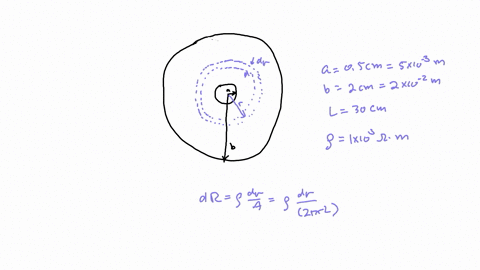 dr
r
b
a = 0.5 cm = 5×10⁻³ m
b = 2 cm = 2×10⁻² m
L = 30 cm
ρ = 1×10³ Ω·m
dR = ρ dr/A = ρ dr/(2πrL)